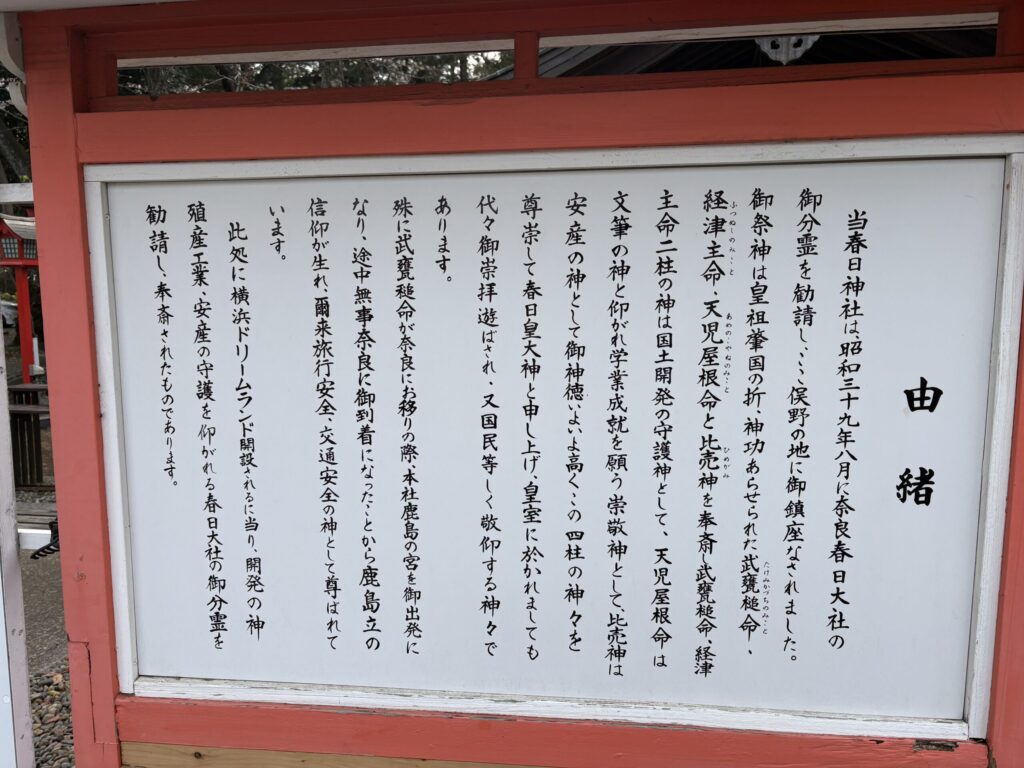 由緒
当春日神社は、昭和三十九年八月に奈良春日大社の
御分霊を勧請し、ここ、俣野の地に御鎮座なされました。
御祭神は皇祖肇国の折、神功あらせられた武甕槌命、
たけみかづちのみこと
経津主命、天児屋根命と比売神を奉斎武甕槌命、経津
ふつぬしのみこと あめのこやねのみこと ひめがみ
主命二柱の神は国土開発の守護神として、天児屋根命は
文筆の神と仰がれ学業成就を願う崇敬神として、比売神は
安産の神として御神徳いよいよ高くこの四柱の神々を
尊崇して春日皇大神と申し上げ、皇室に於かれましても
代々御崇拝遊ばされ、又国民等しく敬仰する神々で
あります。
殊に武甕槌命が奈良にお移りの際、本社鹿島の宮を御出発に
なり、途中無事奈良に御到着になったことから鹿島立の
信仰が生れ、爾来旅行安全、交通安全の神として尊ばれて
います。
此処に横浜ドリームランド開設されるに当り、開発の神
殖産工業、安産の守護を仰がれる春日大社の御分霊を
勧請し、奉斎されたものであります。